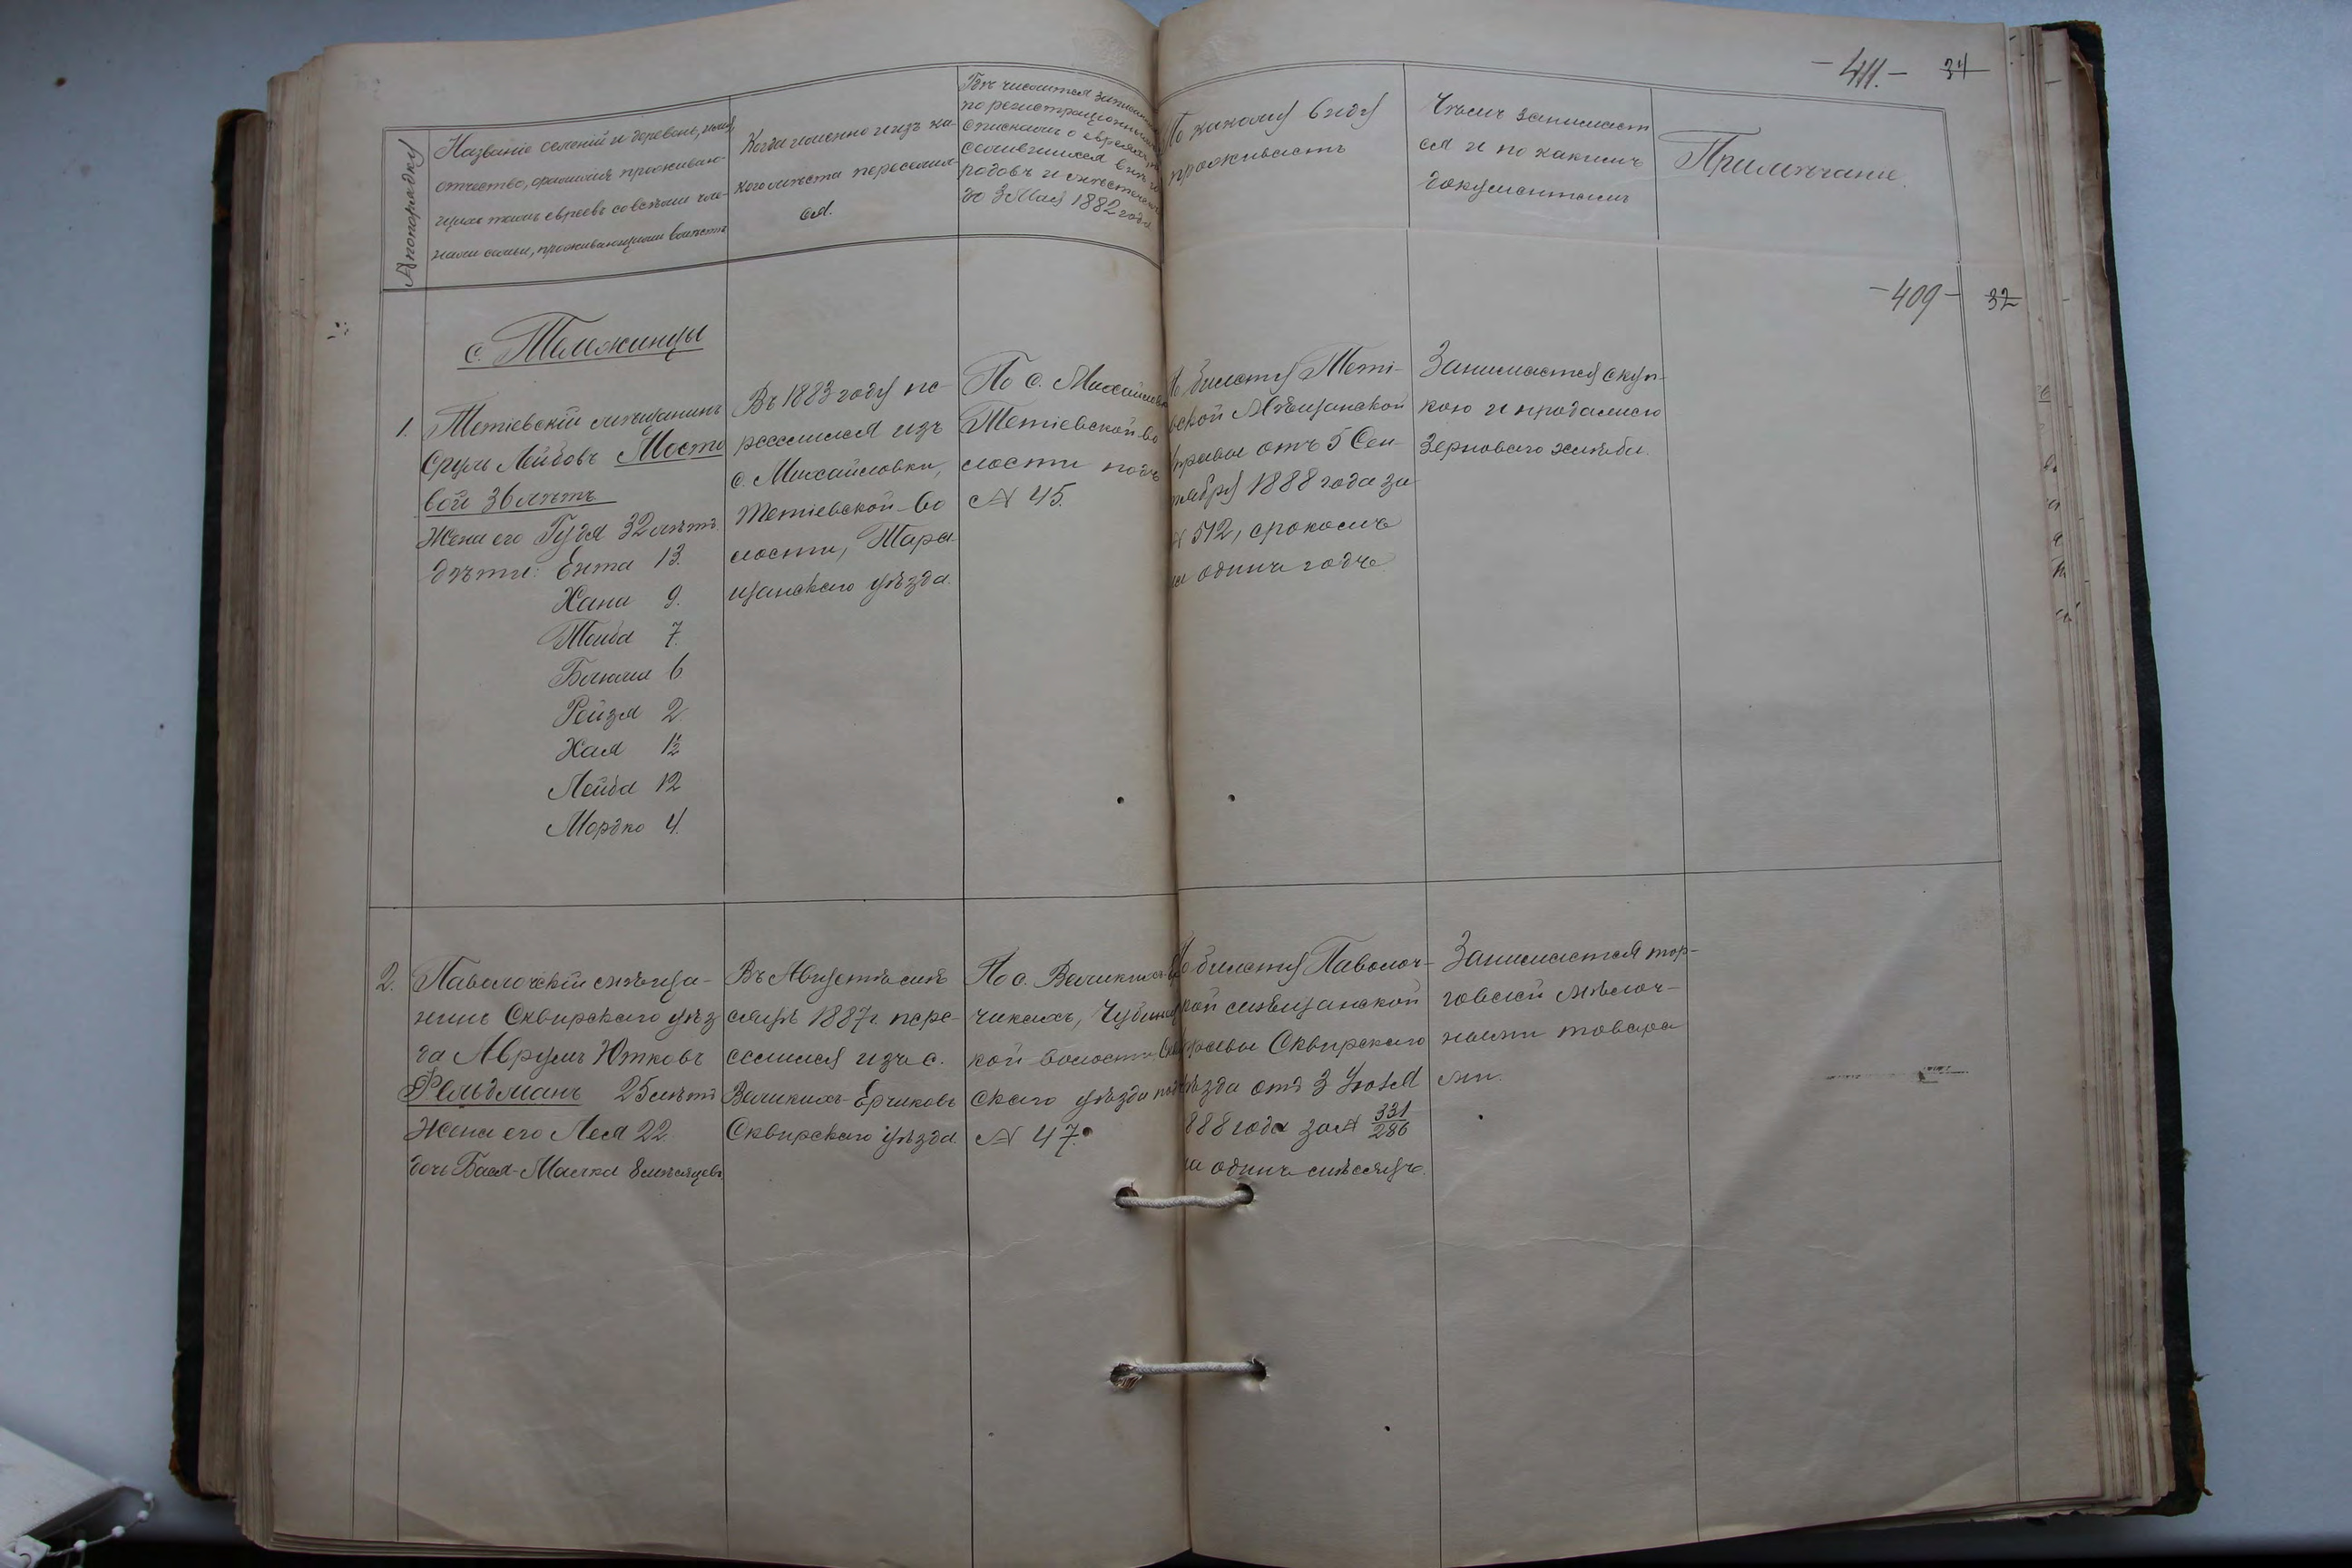 -411.- 34
№ по порядку
Названіе селеній и деревень, имя,
отчество, фамилія проживаю-
щихъ тамъ евреевъ со всѣми чле-
нами семьи, проживающими вмѣстѣ
Когда именно и изъ ка-
кого мѣста переселил-
ся.
Гдѣ числится записаннымъ
по регистраціоннымъ
спискамъ о евреяхъ, по-
селившихся внѣ го-
родовъ и мѣстечекъ
до 3 Мая 1882 года
По какому виду
проживаетъ
Чѣмъ занимает
ся и по какимъ
документамъ
Примѣчаніе.
-409- 32
с. Тележинцы
1. Тетіевскій мѣщанинъ
Сруль Лейбовъ Мосто
вой 36 лѣтъ
Жена его Гудя 32 лѣтъ
дѣти: Ента 13.
Хана 9.
Тойба 7.
Блюма 6
Рейзя 2.
Хая 1½
Лейба 12
Мордко 4.
Въ 1883 году пе-
реселился изъ
с. Михайловки,
Тетіевской во
лости, Тара
щанскаго уѣзда.
По с. Михайловкѣ
Тетіевской во
лости подъ
№ 45.
По билету Тетi-
евской Мѣщанской
Управы отъ 5 Сен
тября 1888 года за
№ 512, срокомъ
на одинъ годъ
Занимается скуп-
кою и продажею
зернового хлѣба.
2. Паволочскій мѣща-
нинъ Сквирскаго уѣз
да Аврумъ Ютковъ
Фельдманъ 25 лѣтъ
Жена его Лея 22.
дочь Бася-Малка 8 мѣсяцевъ
Въ Августѣ мѣ
сяцѣ 1887 г. пере-
селился изъ с.
Великихъ-Ерчиковъ
Сквирскаго уѣзда.
По с. Великихъ Ер
чикахъ, Чубинец
кой волости Сквир
скаго уѣзда подъ
№ 47.
По билету Паволоч-
кой мѣщанской
управы Сквирскаго
уѣзда отъ 3 Іюля
1888 года за № 331/286
на одинъ мѣсяцъ.
Занимается тор-
говлей мѣлоч-
ными товара
ми.